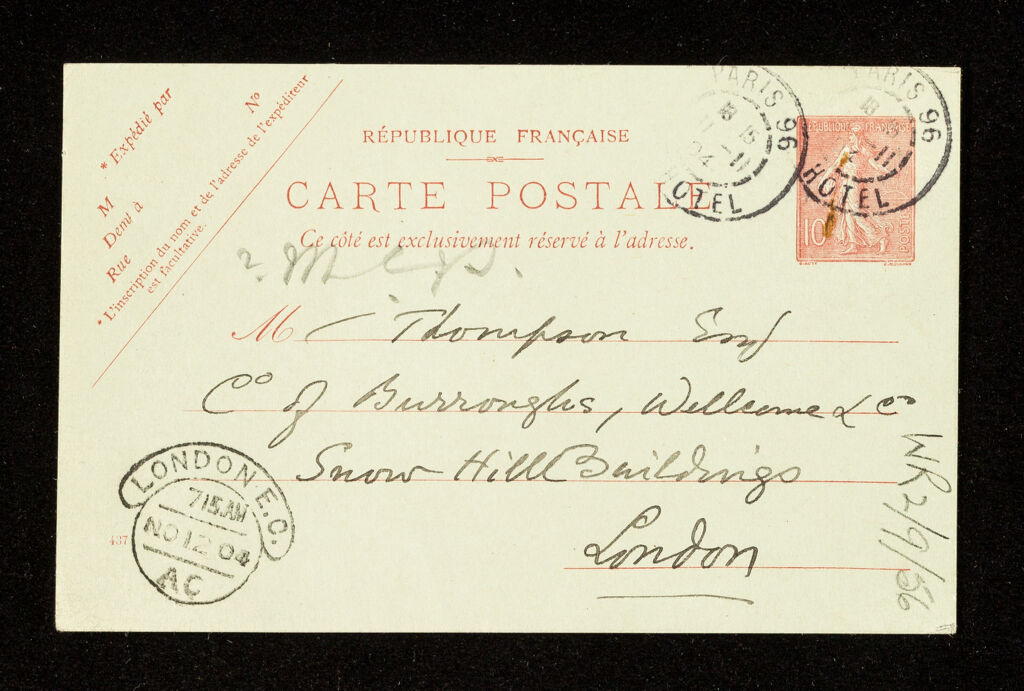 * Expédié par
M
Demt à
Rue Nº
* L'inscription du nom et de l'adresse de l'expéditeur
est facultative.
RÉPUBLIQUE FRANÇAISE
CARTE POSTALE
Ce côté est exclusivement réservé à l'adresse.
PARIS 96
18 15
11 -11
04
HOTEL
PARIS 96
18 15
-11
HOTEL
RÉPUBLIQUE FRANÇAISE
10
POSTES
M C Thompson Esq
Co of Burroughs, Wellcome & Co
Snow Hill Buildings
London
LONDON E.C.
7 15.AM
NO 12 04
AC
437
WR 2/9/56